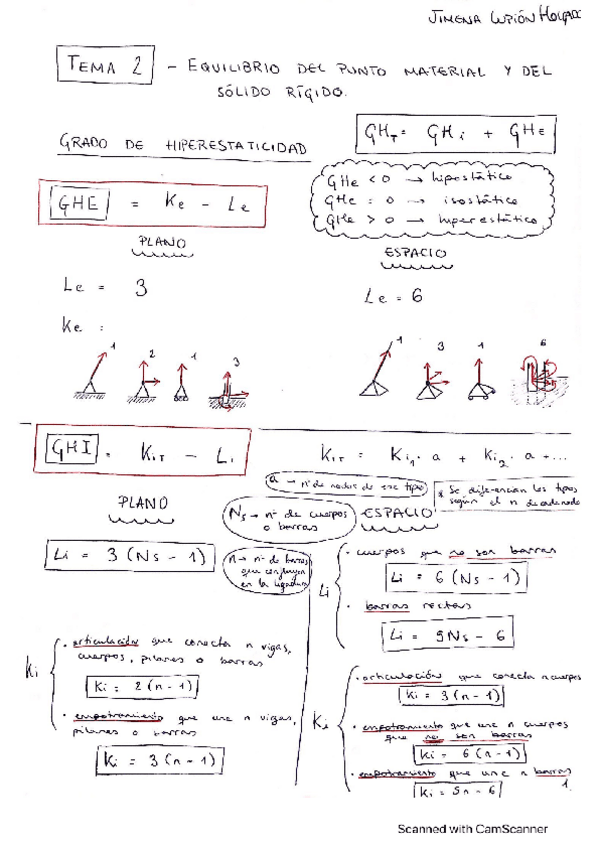 JIMENA LUPIÓN
TEMA 2 - EQUILIBRIO DEL PUNTO MATERIAL Y DEL
SÓLIDO RÍGIDO.
GHT = GHi + GHe
GRADO DE HIPERESTATICIDAD
GHe < 0 → hipostático
GHe = 0 → isostático
GHe > 0 → hiperestático
GHE = Ke - Le
PLANO
ESPACIO
Le = 3
Le = 6
Ke =
1 2 1 3
1 3 1 6
GHI = KiT - Li
KiT = Ki1 · a + Ki2 · a + ...
a → nº de nudos de ese tipo
* Se diferencian los tipos
según el n
PLANO
Ns → nº de cuerpos
o barras
ESPACIO
Li = 3 (Ns - 1)
n → nº de barras
que confluyen
en la ligadura
Li
· cuerpos que no son barras
Li = 6 (Ns - 1)
· barras rectas
Li = 5Ns - 6
Ki
· articulación que conecta n vigas,
cuerpos, pilares o barras
Ki = 2 (n - 1)
· empotramiento que une n vigas,
pilares o barras
Ki = 3 (n - 1)
Ki
· articulación que conecta n cuerpos
Ki = 3 (n - 1)
· empotramiento que une n cuerpos
que no son barras
Ki = 6 (n - 1)
· empotramiento que une n barras
Ki = 5n - 6
1
Scanned with CamScanner